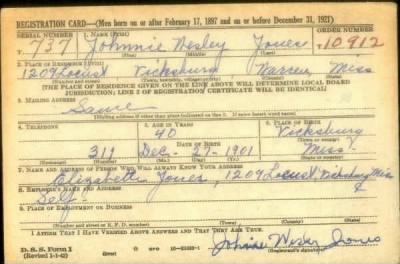 REGISTRATION CARD—(Men born on or after February 17, 1897 and on or before December 31, 1921)
SERIAL NUMBER 1. NAME (Print) ORDER NUMBER
T 737 Johnnie Wesley Jones 10912
(First) (Middle) (Last)
2. PLACE OF RESIDENCE (Print)
1209 Locust Vicksburg Warren Miss
(Number and street) (Town, township, village, or city) (County) (State)
[THE PLACE OF RESIDENCE GIVEN ON THE LINE ABOVE WILL DETERMINE LOCAL BOARD
JURISDICTION; LINE 2 OF REGISTRATION CERTIFICATE WILL BE IDENTICAL]
3. MAILING ADDRESS
Same
[Mailing address if other than place indicated on line 2. If same insert word same]
4. TELEPHONE 5. AGE IN YEARS 6. PLACE OF BIRTH
40 Vicksburg
DATE OF BIRTH (Town or county)
311 Dec. 27 1901 Miss.
(Exchange) (Number) (Mo.) (Day) (Yr.) (State or country)
7. NAME AND ADDRESS OF PERSON WHO WILL ALWAYS KNOW YOUR ADDRESS
Elizabeth Jones, 1209 Locust, Vicksburg Miss
8. EMPLOYER'S NAME AND ADDRESS
Self
9. PLACE OF EMPLOYMENT OR BUSINESS
(Number and street or R. F. D. number) (Town) (County) (State)
I AFFIRM THAT I HAVE VERIFIED ABOVE ANSWERS AND THAT THEY ARE TRUE.
D. S. S. Form 1
(Revised 1-1-42) (over)
Johnnie Wesley Jones
(Registrant's signature)